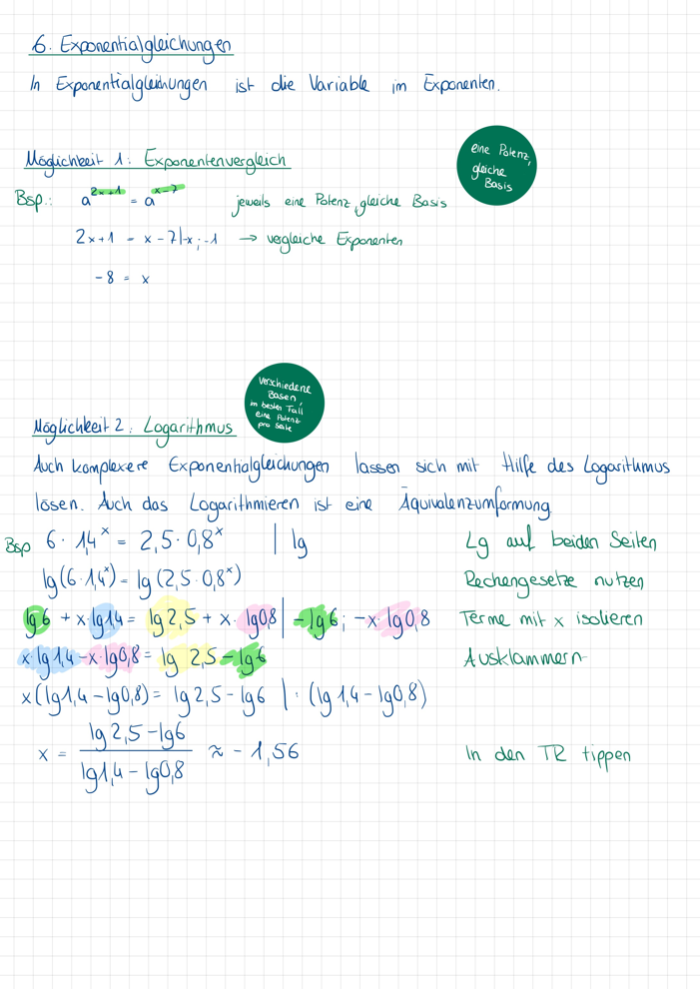 6. Exponentialgleichungen
In Exponentialgleichungen ist die Variable im Exponenten.
eine Potenz,
gleiche
Basis
Möglichkeit 1: Exponentenvergleich
Bsp.: a^(2x+1) = a^(x-7) jeweils eine Potenz, gleiche Basis
2x+1 = x - 7 |-x ; -1 → vegleiche Exponenten
-8 = x
Verschiedene
Basen,
im besten Fall
eine Potenz
pro Seite
Möglichkeit 2: Logarithmus
Auch komplexere Exponentialgleichungen lassen sich mit Hilfe des Logarithmus
lösen. Auch das Logarithmieren ist eine Äquivalenzumformung
Bsp 6 · 1,4^x = 2,5 · 0,8^x | lg Lg auf beiden Seiten
lg(6·1,4^x) = lg(2,5·0,8^x) Rechengesetze nutzen
lg6 + x·lg1,4 = lg2,5 + x·lg0,8 | -lg6; -x·lg0,8 Terme mit x isolieren
x·lg1,4 - x·lg0,8 = lg 2,5 - lg6 Ausklammern
x(lg1,4 - lg0,8) = lg2,5 - lg6 | : (lg1,4 - lg0,8)
x = (lg2,5 - lg6)/(lg1,4 - lg0,8) ≈ -1,56 In den TR tippen